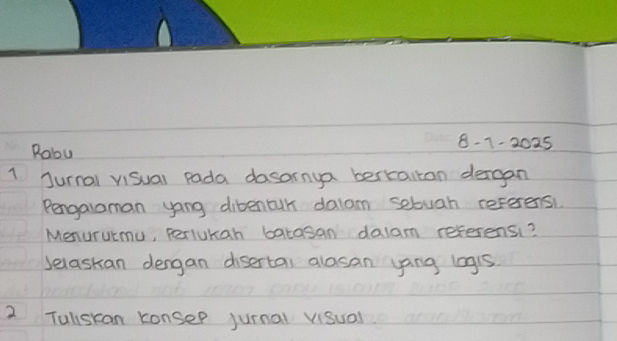 Rabu 8-1-2025
1 Jurnal visual pada dasarnya berkaitan dengan
Pengalaman yang dibentuk dalam sebuah referensi.
Menurutmu, Perlukah batasan dalam referensi?
Jelaskan dengan disertai alasan yang logis.
2 Tuliskan konsep jurnal visual.